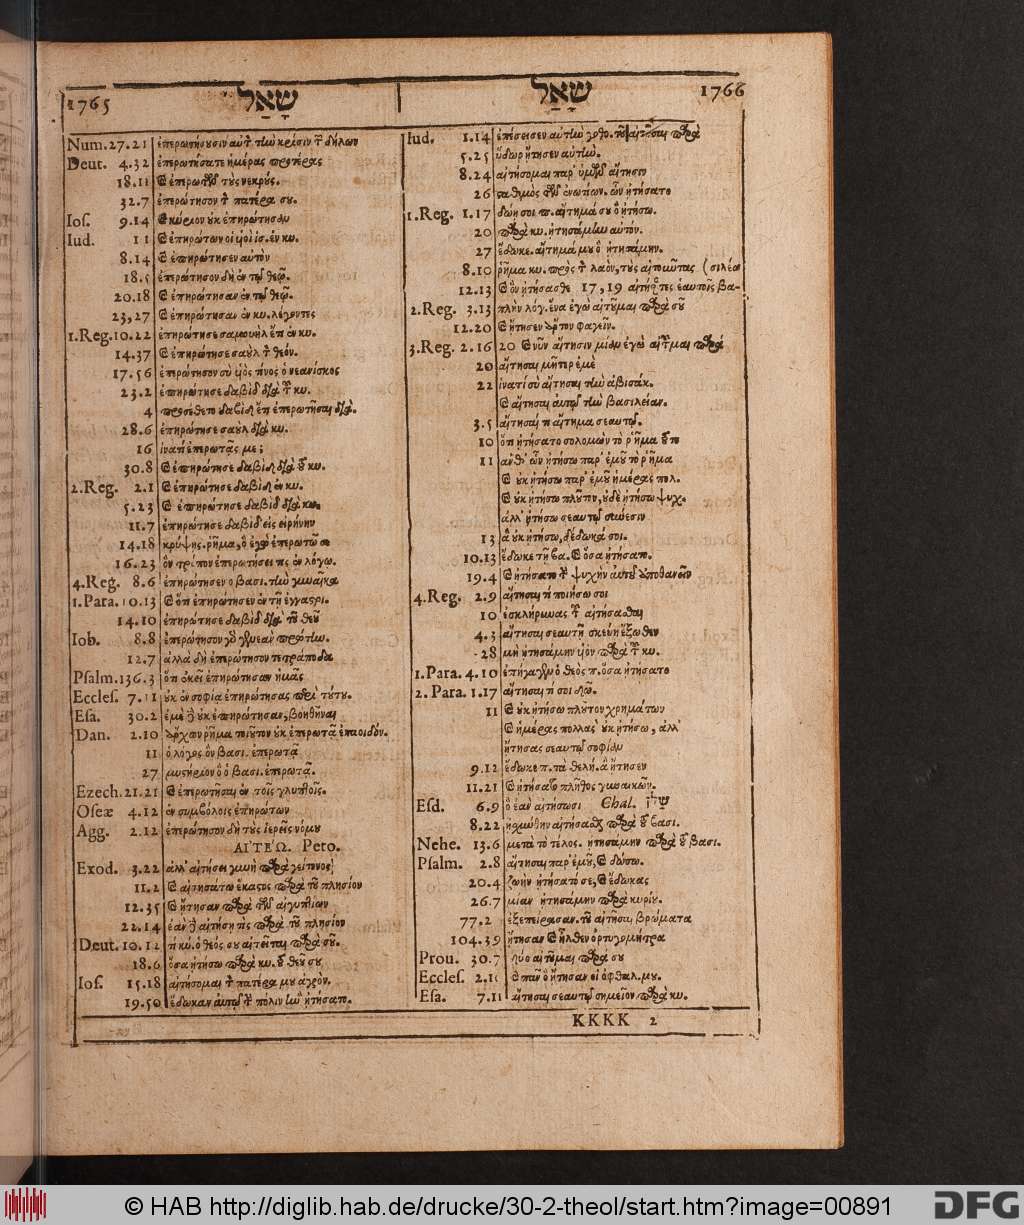 1765 שָׁאַל
Num. 27.21 ἐπερωτήσουσιν αυτ τὼ κρίσιν τ δήλων
Deut. 4.32 ἐπερωτήσατε ἡμέρας προτέρας
18.11 ἐπερωτῶν τοὺς νεκρούς.
32.7 ἐπερώτησον τ πατέρα σου.
Ios. 9.14 κύριον οὐκ ἐπηρώτησαν
Iud. 1 1 ἐπηρώτων οἱ υἱοὶ ἰσ. ἐν κυ.
8.14 ἐπηρώτησεν αὐτὸν
18.5 ἐπερώτησον δὴ ἐν τῷ θεῷ.
20.18 ἐπηρώτησαν ἐν τῷ θεῷ.
23,27 ἐπηρώτησαν ἐν κυ. λέγοντες
1.Reg. 10.22 ἐπηρώτησε σαμουὴλ ἔτι ἐν κυ.
14.37 ἐπηρώτησε σαοὺλ τ θεόν.
17.56 ἐπερώτησον σὺ υἱὸς τίνος ὁ νεανίσκος
23.2 ἐπηρώτησε δαβὶδ διὰ τ κυ.
4 προσέθετο δαβὶδ ἔτι ἐπερωτῆσαι διὰ.
28.6 ἐπηρώτησε σαοὺλ διὰ κυ.
16 ἱνατί ἐπερωτᾷς με;
30.8 ἐπηρώτησε δαβὶδ διὰ τ κυ.
2.Reg. 2.1 ἐπηρώτησε δαβὶδ ἐν κυ.
5.23 ἐπηρώτησε δαβὶδ διὰ κυ.
11.7 ἐπηρώτησε δαβὶδ εἰς εἰρήνην
14.18 κρύψῃς. ῥῆμα, ὃ ἐγὼ ἐπερωτῶ σε
16.23 ὃν τρόπον ἐπερωτήσει τις ἐν λόγω.
4.Reg. 8.6 ἐπηρώτησεν ὁ βασι. τὼ γυναῖκα
1.Para. 10.13 ὅτι ἐπηρώτησεν ἐν τῇ ἐγγαστρι.
14.10 ἐπηρώτησε δαβὶδ διὰ τοῦ θεοῦ
Iob. 8.8 ἐπερώτησον γὸ γενεὰν πρώτην.
12.7 ἀλλὰ δὴ ἐπερώτησον τετράποδα
Psalm. 136.3 ὅτι ἐκεῖ ἐπηρώτησαν ἡμᾶς
Eccles. 7.11 οὐκ ἐν σοφίᾳ ἐπηρώτησας περὶ τούτου.
Esa. 30.2 ἐμὲ οὐκ ἐπηρώτησαν, βοηθῆναι
Dan. 2.10 ἄρχων ῥῆμα τοιοῦτον οὐκ ἐπερωτᾷ ἐπαοιδόν.
11 ὁ λόγος ὃν βασι. ἐπερωτᾷ
27 μυστήριον ὃ ὁ βασι. ἐπερωτᾷ.
Ezech. 21.21 ἐπερωτῆσαι ἐν τοῖς γλυπτοῖς.
Oseæ 4.12 ἐν συμβόλοις ἐπηρώτων
Agg. 2.12 ἐπερώτησον δὴ τοὺς ἱερεῖς νόμου
ΑΙΤΕΩ. Peto.
Exod. 3.22 ἀλλ' αἰτήσει γυνὴ παρὰ γείτονος
11.2 αἰτησάτω ἕκαστος παρὰ τοῦ πλησίον
12.35 ᾔτησαν παρὰ τῶν αἰγυπτίων
22.14 ἐὰν αἰτήσῃ τις παρὰ τοῦ πλησίον
Deut. 10.12 τί κυ. ὁ θεός σου αἰτεῖται παρὰ σοῦ.
18.6 ὅσα ᾐτήσω παρὰ κυ. τοῦ θεοῦ σου
Ios. 15.18 αἰτήσομαι τ πατέρα μου ἀγρὸν.
19.50 ἔδωκαν αὐτῷ τ πόλιν ἣν ᾐτήσατο.
שָׁאַל 1766
Iud. 1.14 ἐπέσεισεν αὐτὼ
5.25 ὕδωρ ᾔτησεν αὐτὼ.
8.24 αἰτήσομαι παρ' ὑμῶν αἴτησιν
26 σταθμὸς τῶν ἐνωτίων. ὧν ᾐτήσατο
1.Reg. 1.17 δώῃ σοι π. αἴτημά σου ὃ ᾐτήσω.
20 παρὰ κυ. ᾐτησάμην αὐτόν.
27 ἔδωκε. αἴτημά μου ὃ ᾐτησάμην.
8.10 ῥῆμα κυ. πρὸς τ λαὸν, τοὺς αἰτοῦντας (σιλέα
12.13 ὃν ᾐτήσασθε 17, 19 αἰτήσαντες ἑαυτοῖς βα-
2.Reg. 3.13 πλὴν λόγ. ἕνα ἐγὼ αἰτοῦμαι παρὰ σοῦ
12.20 ᾔτησεν ἄρτον φαγεῖν.
3.Reg. 2.16 20 νῦν αἴτησιν μίαν ἐγὼ αἰτοῦμαι παρὰ
20 αἴτησαι μῆτερ ἐμὲ
22 ἱνατί σὺ αἴτησαι τὼ ἀβισάκ.
αἴτησαι αὐτῷ τὼ βασιλείαν.
3.5 αἴτησαί τι αἴτημα σεαυτῷ.
10 ὅτι ᾐτήσατο σολομὼν τὸ ῥῆμα τοῦτο
11 ἀνθ' ὧν ᾐτήσω παρ' ἐμοῦ τὸ ῥῆμα
οὐκ ᾐτήσω παρ' ἐμοῦ ἡμέρας πολ.
οὐκ ᾐτήσω πλοῦτον, οὐδὲ ᾐτήσω ψυχ.
ἀλλ' ᾐτήσω σεαυτῷ σύνεσιν
13 ἃ οὐκ ᾐτήσω, δέδωκά σοι.
10.13 ἔδωκε τῇ βα. ὅσα ᾐτήσατο.
19.4 ᾐτήσατο τ ψυχὴν αὐτοῦ ἀποθανεῖν
4.Reg. 2.9 αἴτησαι τί ποιήσω σοι
10 ἐσκλήρυνας τ αἰτήσασθαι
4.3 αἴτησαι σεαυτῇ σκεύη ἔξωθεν
28 μὴ ᾐτησάμην υἱὸν παρὰ τ κυ.
1.Para. 4.10 ἐπήγαγεν ὁ θεὸς π. ὅσα ᾐτήσατο
2.Para. 1.17 αἴτησαι τί σοι δῶ.
11 οὐκ ᾐτήσω πλοῦτον χρημάτων
ἡμέρας πολλὰς οὐκ ᾐτήσω, ἀλλ'
ᾔτησας σεαυτῷ σοφίαν
9.12 ἔδωκε π. τὰ θελή. ἃ ᾔτησεν
11.21 ᾐτήσατο πλῆθος γυναικῶν.
Esd. 6.9 ὃ ἐὰν αἰτήσωσι Chal.
8.22 ᾐσχύνθην αἰτήσασθ παρὰ τοῦ βασι.
Nehe. 13.6 μετὰ τὸ τέλος. ᾐτησάμην παρὰ τοῦ βασι.
Psalm. 2.8 αἴτησαι παρ' ἐμοῦ, δώσω.
20.4 ζωὴν ᾐτήσατό σε, ἔδωκας
26.7 μίαν ᾐτησάμην παρὰ κυρίου.
77.2 ἐξεπείρασαν. τοῦ αἰτῆσαι βρώματα
104.39 ᾔτησαν ἦλθεν ὀρτυγομήτρα
Prou. 30.7 δύο αἰτοῦμαι παρὰ σου
Eccles. 2.11 πᾶν ὃ ᾔτησαν οἱ ὀφθαλ. μου.
Esa. 7.11 αἴτησαι σεαυτῷ σημεῖον παρὰ κυ.
KKKK 2
© HAB http://diglib.hab.de/drucke/30-2-theol/start.htm?image=00891
DFG